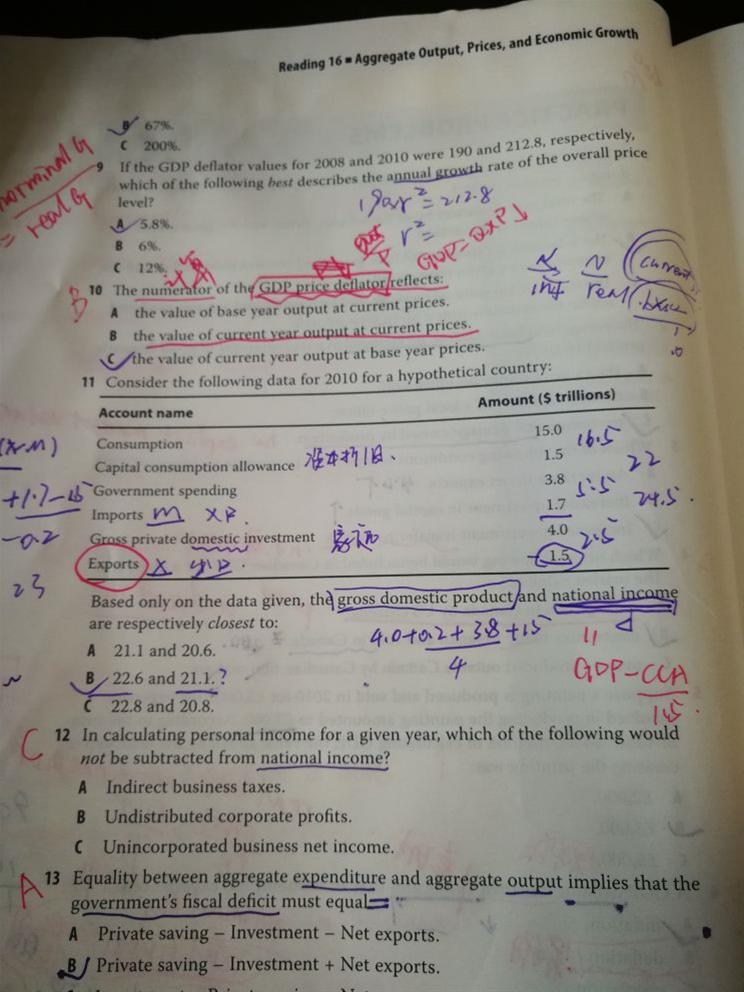 Reading 16 ■ Aggregate Output, Prices, and Economic Growth
B 67%.
C 200%.
norminal G
= real G
9 If the GDP deflator values for 2008 and 2010 were 190 and 212.8, respectively,
which of the following best describes the annual growth rate of the overall price
level?
190r² = 212.8
A 5.8%.
r² =
B 6%.
GDP = Q×P↓
C 12%.
计算
B
10 The numerator of the GDP price deflator reflects:
N N current
inf real base
A the value of base year output at current prices.
B the value of current year output at current prices.
C the value of current year output at base year prices.
11 Consider the following data for 2010 for a hypothetical country:
Account name Amount ($ trillions)
(X-M)
Consumption 15.0 16.5
Capital consumption allowance 资本折旧、 1.5 22
Government spending 3.8 5.5
+1.7-1.5
Imports M 1.7 24.5
-0.2
Gross private domestic investment 4.0 2.5
Exports X 1.5
23
Based only on the data given, the gross domestic product and national income
are respectively closest to:
4.0+0.2+3.8+15
4
A 21.1 and 20.6.
B 22.6 and 21.1.?
GDP-CCA
1.5
C 22.8 and 20.8.
C
12 In calculating personal income for a given year, which of the following would
not be subtracted from national income?
A Indirect business taxes.
B Undistributed corporate profits.
C Unincorporated business net income.
A
13 Equality between aggregate expenditure and aggregate output implies that the
government's fiscal deficit must equal=
A Private saving − Investment − Net exports.
B Private saving − Investment + Net exports.